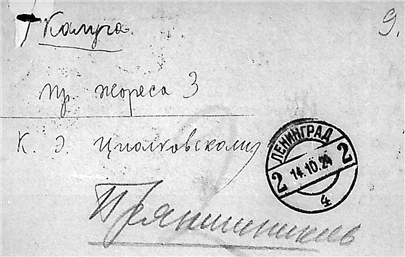 г Калуга
9.
пр. Жореса 3
К. Э. Циолковскому
ЛЕНИНГРАД
2 14.10.26 2
4
Прянишников